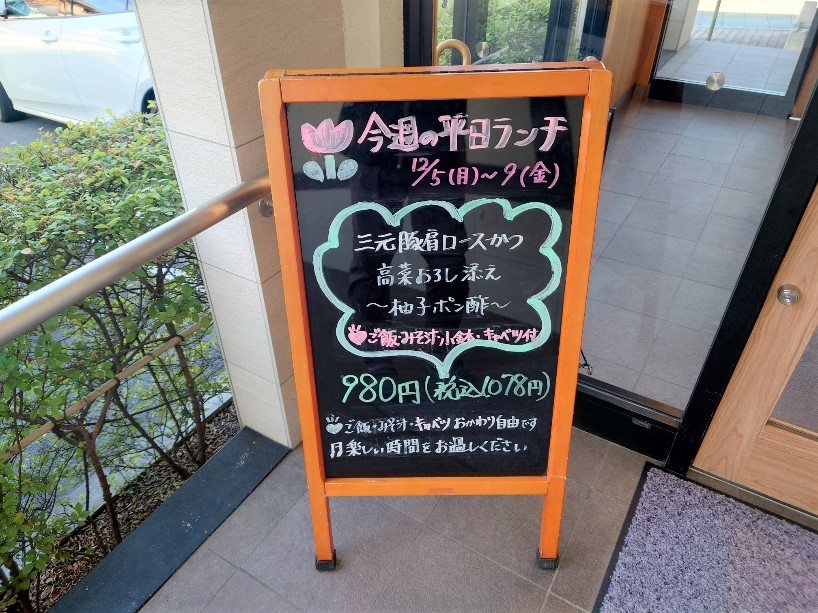 今週の平日ランチ
12/5(月)～9(金)
三元豚肩ロースかつ
高菜おろし添え
～柚子ポン酢～
ご飯・みそ汁・小鉢・キャベツ付
980円(税込1078円)
ご飯・みそ汁・キャベツ おかわり自由です
楽しい時間をお過しください